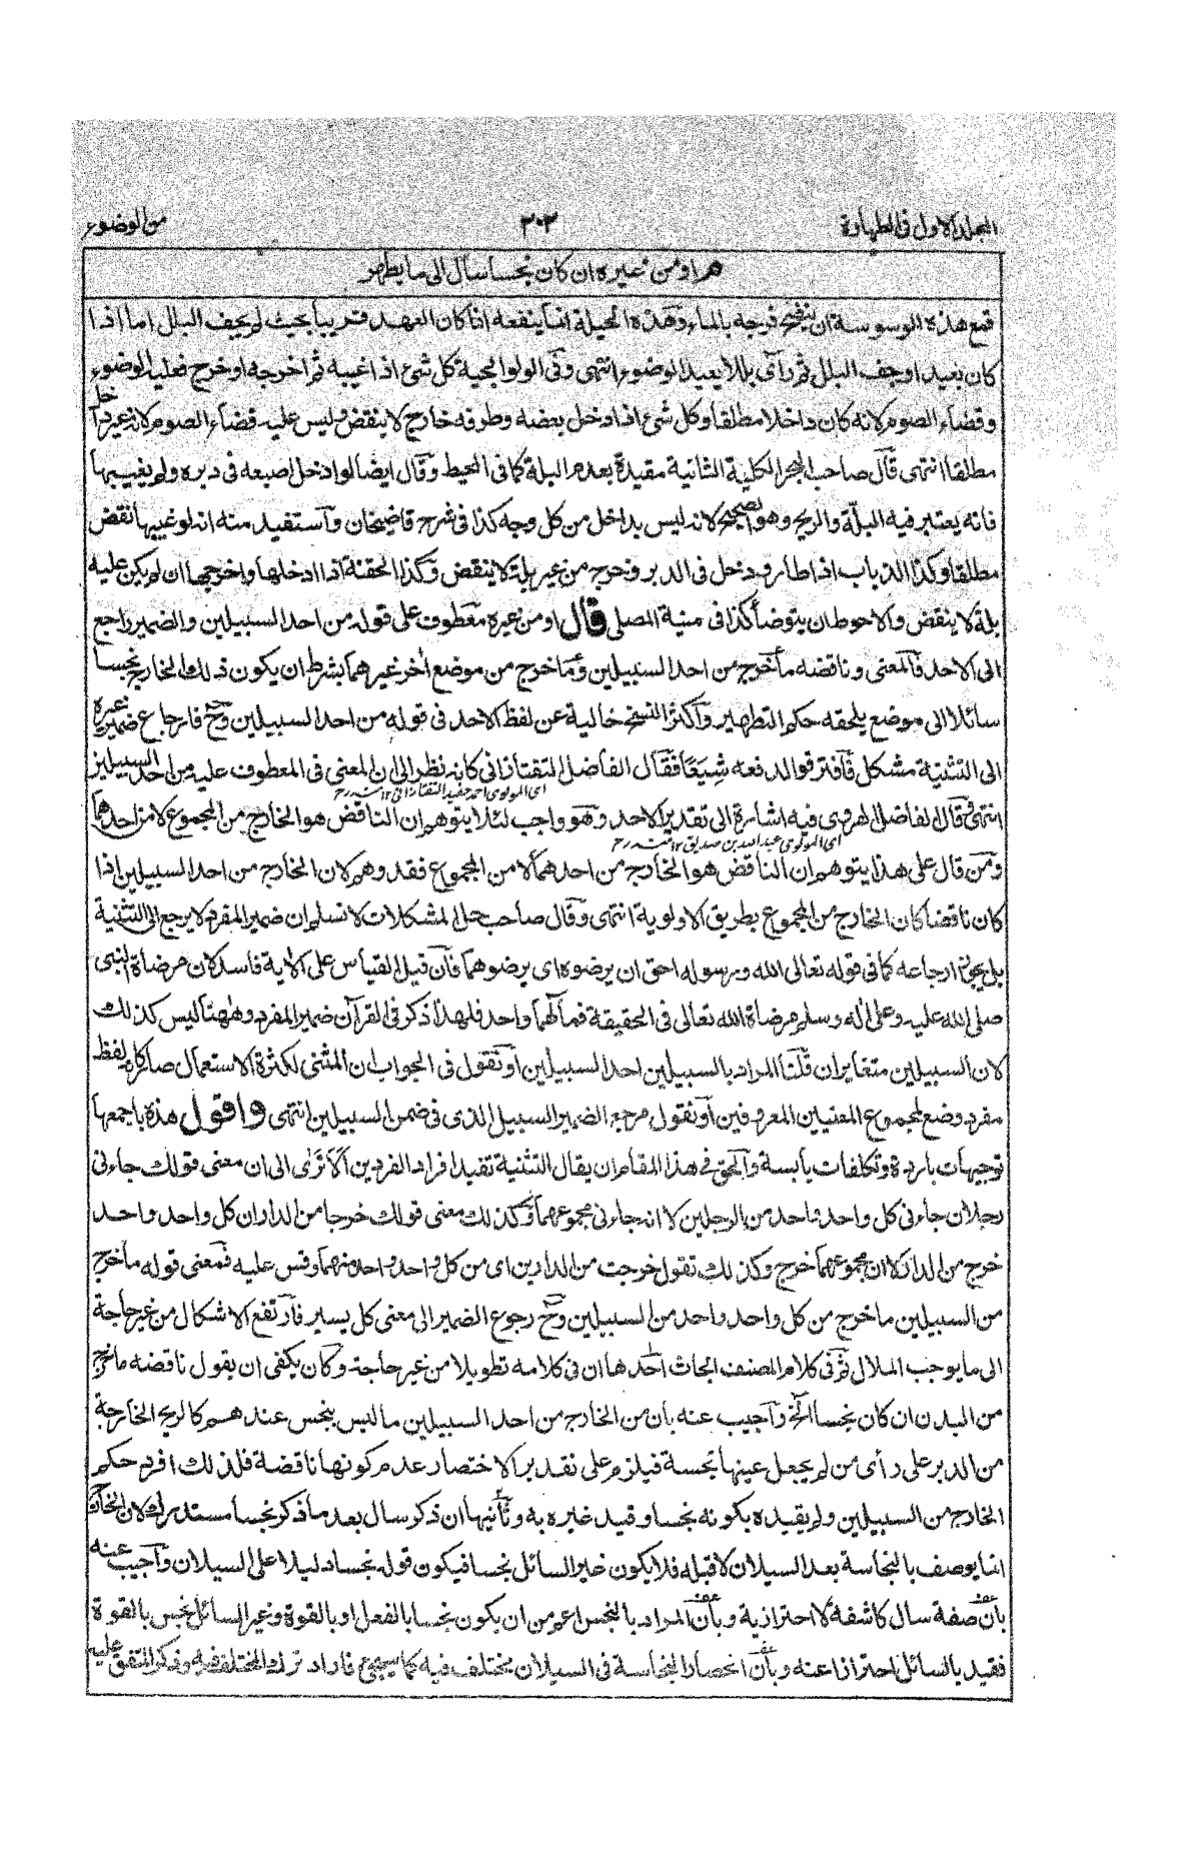 المجلد الاول فى الطهارة
٣٠٢
من الوضوء
هراو من غيره ان كان نجسا سال الى ما يطهر
قمع هذه الوسوسة ان ينضح فرجه بالماء وهذه الحيلة انما ينفعه اذا كان العهد قريبا بحيث لم يجف البلل اما اذا
كان بعيدا وجف البلل ثم رأى بللا يعيد الوضوء انتهى وفى الولوالجية كل شئ اذا غيبه ثم اخرجه او خرج فعليه الوضوء
وقضاء الصوم لانه كان داخلا مطلقا وكل شئ اذا دخل بعضه وطرفه خارج لا ينقض وليس عليه قضاء الصوم لانه غير داخل
مطلقا انتهى قال صاحب البحر الكلية الثانية مقيدة بعدم البلة كما فى المحيط وقال ايضا لو ادخل اصبعه فى دبره ولم يغيبها
فانه يعتبر فيه البلة والريح وهو الصحيح لانه ليس بداخل من كل وجه كذا فى شرح قاضيخان واستفيد منه انه لو غيبها نقض
مطلقا وكذا الذباب اذا طار ودخل فى الدبر وخرج من غير بلة لا ينقض وكذا الحقنة اذا ادخلها واخرجها ان لم يكن عليه
بلة لا ينقض والاحوط ان يتوضأ كذا فى منية المصلى قال او من غيره معطوف على قوله من احد السبيلين والضمير راجع
الى الاحد فالمعنى وناقضه ما خرج من احد السبيلين وما خرج من موضع اخر غيرهما بشرط ان يكون ذلك الخارج نجسا
سائلا الى موضع يلحقه حكم التطهير واكثر النسخ خالية عن لفظ الاحد فى قوله من احد السبيلين وح فارجاع ضمير غيره
الى التثنية مشكل فافترقوا لدفعه شيعا فقال الفاضل التفتازانى كانه نظر الى ان المعنى فى المعطوف عليه من احد السبيلين
اى المولوى احمد حفيد التفتازانى ١٢ منه رح
انتهى وقال الفاضل الهروى فيه اشارة الى تقدير الاحد وهو واجب لئلا يتوهم ان الناقض هو الخارج من المجموع لا من احدهما
اى المولوى عبد الله بن صديق ١٢ منه رح
ومن قال على هذا يتوهم ان الناقض هو الخارج من احدهما لا من المجموع فقد وهم لان الخارج من احد السبيلين اذا
كان ناقضا كان الخارج من المجموع بطريق الاولوية انتهى وقال صاحب حل المشكلات لا نسلم ان ضمير المفرد لا يرجع الى التثنية
بل يجوز ارجاعه كما فى قوله تعالى الله ورسوله احق ان يرضوه اى يرضوهما فان قيل القياس على الاية فاسد لان مرضاة النبى
صلى الله عليه وعلى اله وسلم مرضاة الله تعالى فى الحقيقة فمآلهما واحد فلهذا ذكر فى القرآن ضمير المفرد وههنا ليس كذلك
لان السبيلين متغايران قلنا المراد بالسبيلين احد السبيلين او نقول فى الجواب ان المثنى لكثرة الاستعمال صار كانه لفظ
مفرد وضع لمجموع المعنيين المعروفين او نقول مرجع الضمير السبيل الذى فى ضمن السبيلين انتهى واقول هذه باجمعها
توجيهات باردة وتكلفات يابسة والحق فى هذا المقام ان يقال التثنية تفيد افراد الفردين الا ترى الى ان معنى قولك جاءنى
رجلان جاءنى كل واحد واحد من الرجلين لا انه جاءنى مجموعهما وكذلك معنى قولك خرجا من الدار ان كل واحد واحد
خرج من الدار لا ان مجموعهما خرج وكذلك تقول خرجت من الدارين اى من كل واحد واحد منهما وقس عليه فمعنى قوله ما خرج
من السبيلين ما خرج من كل واحد واحد من السبيلين وح رجوع الضمير الى معنى كل يسير فارتفع الاشكال من غير حاجة
الى ما يوجب الملال ثم فى كلام المصنف ابحاث احدها ان فى كلامه تطويلا من غير حاجة وكان يكفى ان يقول ناقضه ما خرج
من البدن ان كان نجسا الخ واجيب عنه بان من الخارج من احد السبيلين ما ليس بنجس عندهم كالريح الخارجة
من الدبر على رأى من لم يجعل عينها نجسة فيلزم على تقدير الاختصار عدم كونها ناقضة فلذلك افرد حكم
الخارج من السبيلين ولم يقيده بكونه نجسا وقيد غيره به وثانيها ان ذكر سال بعد ما ذكر نجسا مستدرك لان الخارج
انما يوصف بالنجاسة بعد السيلان لا قبله فلا يكون غير السائل نجسا فيكون قوله نجسا دليلا على السيلان واجيب عنه
بان صفة سال كاشفة لا احترازية وبان المراد بالنجس اعم من ان يكون نجسا بالفعل او بالقوة وغير السائل نجس بالقوة
فقيد بالسائل احترازا عنه وبان انحصار النجاسة فى السيلان مختلف فيه كما سيجئ فاراد ترك المختلف فيه وذكر المتفق عليه